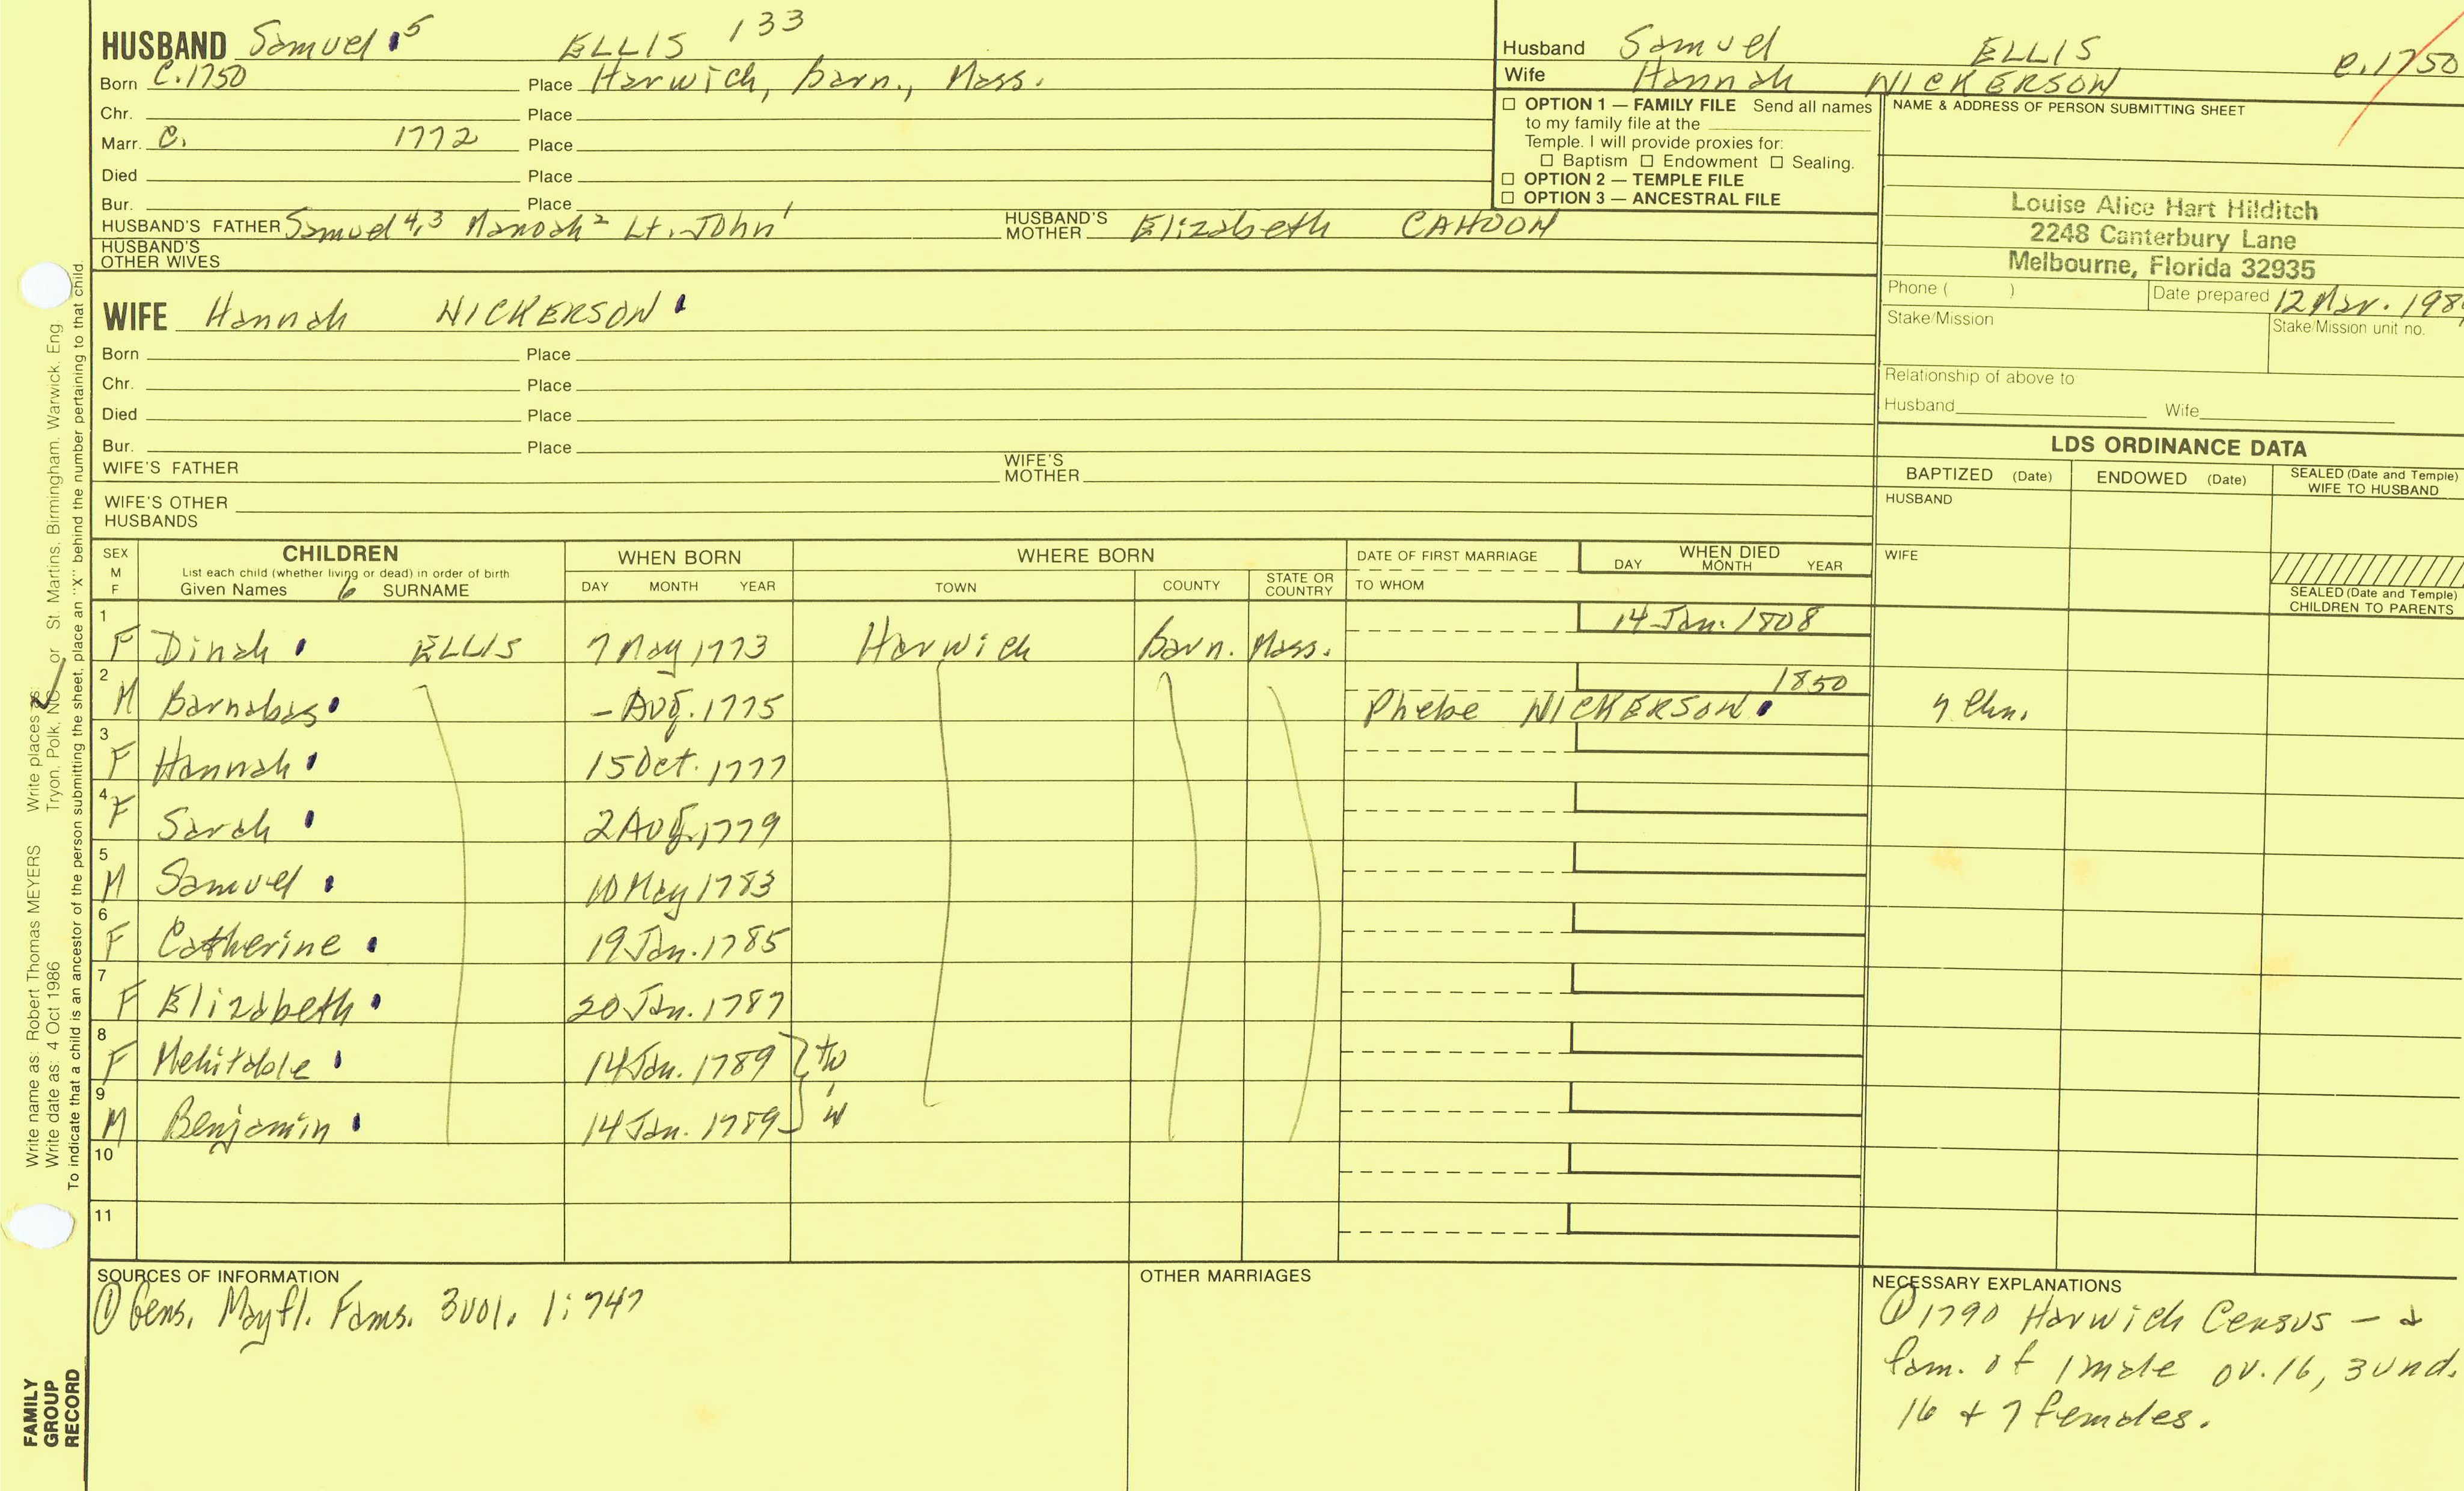 HUSBAND Samuel 5 ELLIS 133
Born C.1750 Place Harwich, barn., Mass.
Chr. Place
Marr. C. 1772 Place
Died Place
Bur. Place
HUSBAND'S FATHER Samuel 4,3 Manoah 2 Lt. John 1 HUSBAND'S MOTHER Elizabeth CAHOON
HUSBAND'S OTHER WIVES
Husband Samuel ELLIS C.1750
Wife Hannah NICKERSON
☐ OPTION 1 — FAMILY FILE Send all names
to my family file at the
Temple. I will provide proxies for:
☐ Baptism ☐ Endowment ☐ Sealing.
☐ OPTION 2 — TEMPLE FILE
☐ OPTION 3 — ANCESTRAL FILE
NAME & ADDRESS OF PERSON SUBMITTING SHEET
Louise Alice Hart Hilditch
2248 Canterbury Lane
Melbourne, Florida 32935
Phone ( ) Date prepared 12 Mar. 198
Stake/Mission Stake/Mission unit no.
Relationship of above to
Husband Wife
WIFE Hannah NICKERSON
Born Place
Chr. Place
Died Place
Bur. Place
WIFE'S FATHER WIFE'S MOTHER
WIFE'S OTHER HUSBANDS
LDS ORDINANCE DATA
BAPTIZED (Date) ENDOWED (Date) SEALED (Date and Temple) WIFE TO HUSBAND
HUSBAND
WIFE
SEALED (Date and Temple) CHILDREN TO PARENTS
SEX M F CHILDREN WHEN BORN WHERE BORN DATE OF FIRST MARRIAGE WHEN DIED
List each child (whether living or dead) in order of birth
Given Names 6 SURNAME DAY MONTH YEAR TOWN COUNTY STATE OR COUNTRY TO WHOM DAY MONTH YEAR
1 F Dinah ELLIS 7 May 1773 Harwich barn. Mass. 14 Jan. 1808
2 M Barnabas – Aug. 1775 Phebe NICKERSON 1850 7 Chn.
3 F Hannah 15 Oct. 1777
4 F Sarah 2 Aug. 1779
5 M Samuel 10 May 1783
6 F Catherine 19 Jan. 1785
7 F Elizabeth 20 Jan. 1787
8 F Mehitable 14 Jan. 1789 } tw
9 M Benjamin 14 Jan. 1789 } in
10
11
SOURCES OF INFORMATION
① Gens. Mayfl. Fams. 3 vol. 1:747
OTHER MARRIAGES
NECESSARY EXPLANATIONS
① 1790 Harwich Census – a
fam. of 1 male ov. 16, 3 und.
16 + 7 females.
Write name as: Robert Thomas MEYERS Write places as: Tryon, Polk, NC or St. Martins, Birmingham, Warwick, Eng.
Write date as: 4 Oct 1986
To indicate that a child is an ancestor of the person submitting the sheet, place an "X" behind the number pertaining to that child.
FAMILY
GROUP
RECORD